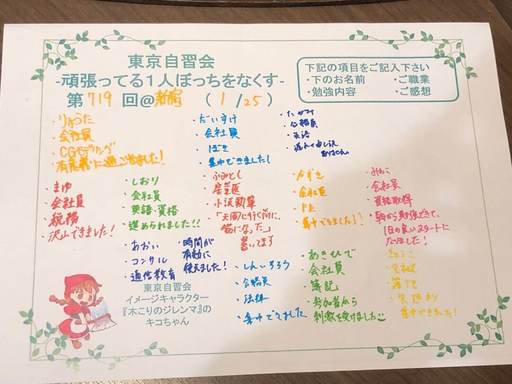 東京自習会
-頑張ってる1人ぼっちをなくす-
第719回@新宿 (1/25)
下記の項目をご記入下さい
・下のお名前 ・ご職業
・勉強内容 ・ご感想
・りょうた
・会社員
・CGモデリング
・有意義に過ごせました!
・だいすけ
・会社員
・ぼき
・集中できました!
・公務員
・英語
・まゆ
・会社員
・税務
・沢山できました!
・しおり
・会社員
・英語・資格
・進められました!!
・ふみとし
・自営業
・小沢
・みずき
・会社員
・集中できました!!
・会社員
・資格取得
・朝から勉強できて、
1日の良いスタートに
なりました!
・あおい
・コンサル
・通信教育
・時間が
有効に
使えました!
・しんいちろう
・公務員
・法律
・集中できました
・あきひで
・会社員
・簿記
・参加者から
刺激を受けました
東京自習会
イメージキャラクター
『木こりのジレンマ』の
キコちゃん